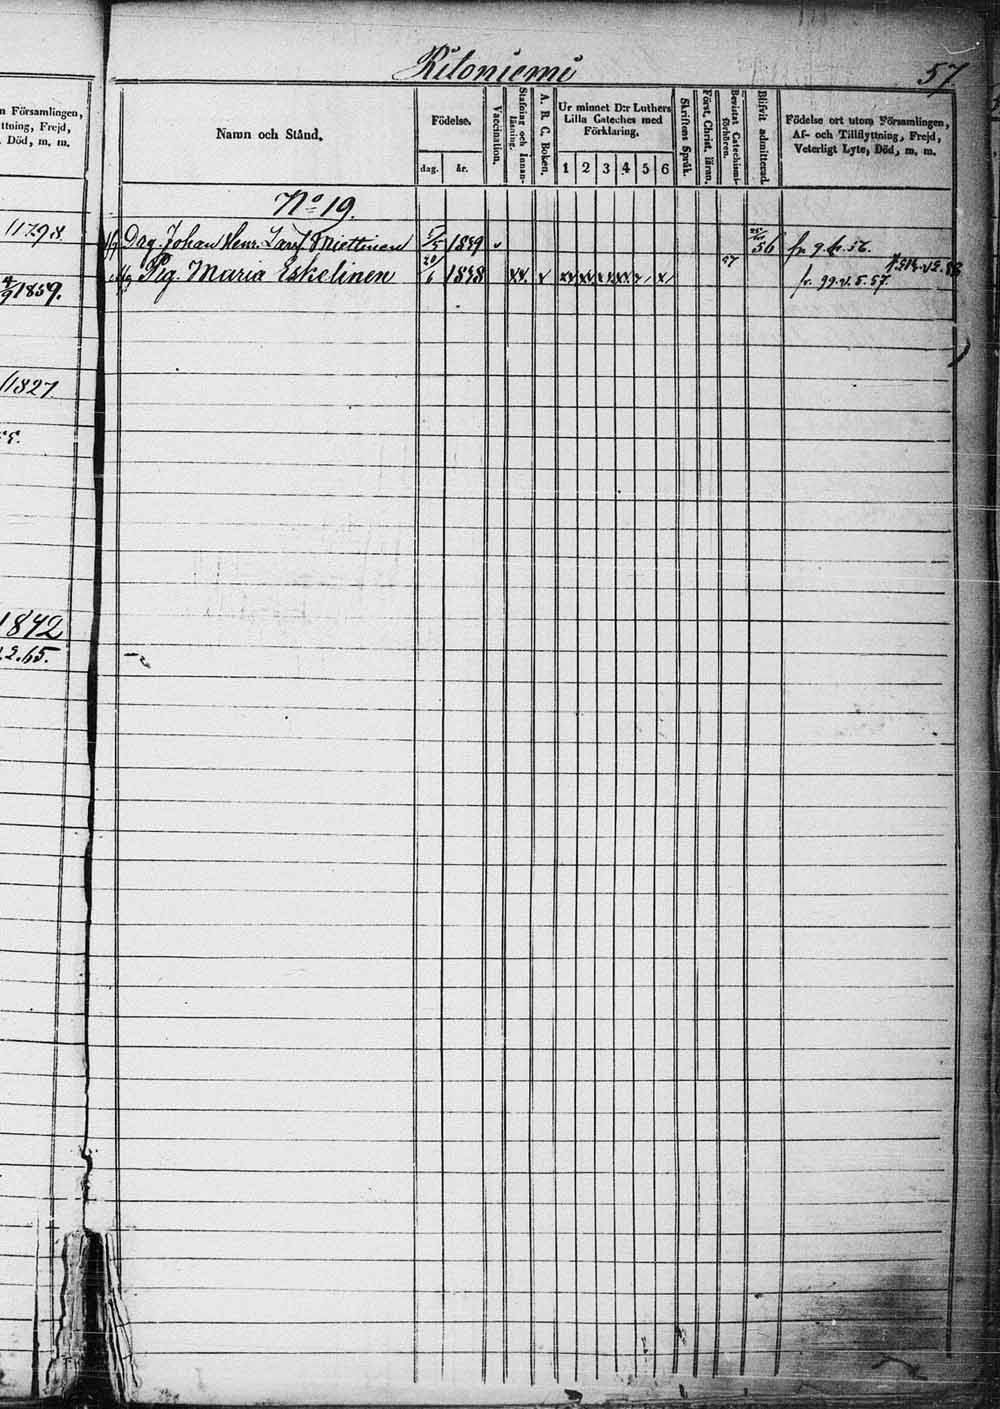 n Församlingen,
ttning, Frejd,
Död, m. m.
1798.
1859.
1827
1842
.2.65.
Kiloniemi
57.
Namn och Stånd.
Födelse.
dag.
år.
Vaccination.
Stafning och Innan-
läsning.
A. B. C. Boken.
Ur minnet D:r Luthers
Lilla Cateches med
Förklaring.
1 2 3 4 5 6
Skriftens Språk.
Först. Christ. läran.
Bevistat Catechismi-
förhören.
Blifvit admitterad.
Födelse ort utom Församlingen,
Af- och Tillflyttning, Frejd,
Veterligt Lyte, Död, m. m.
No 19.
Drg. Johan Henr. Miettinen 5/5 1839 56 fr. 9. 56.
Pig. Maria Eskelinen 20/6 1838 57 fr. 99. v. 5. 57.